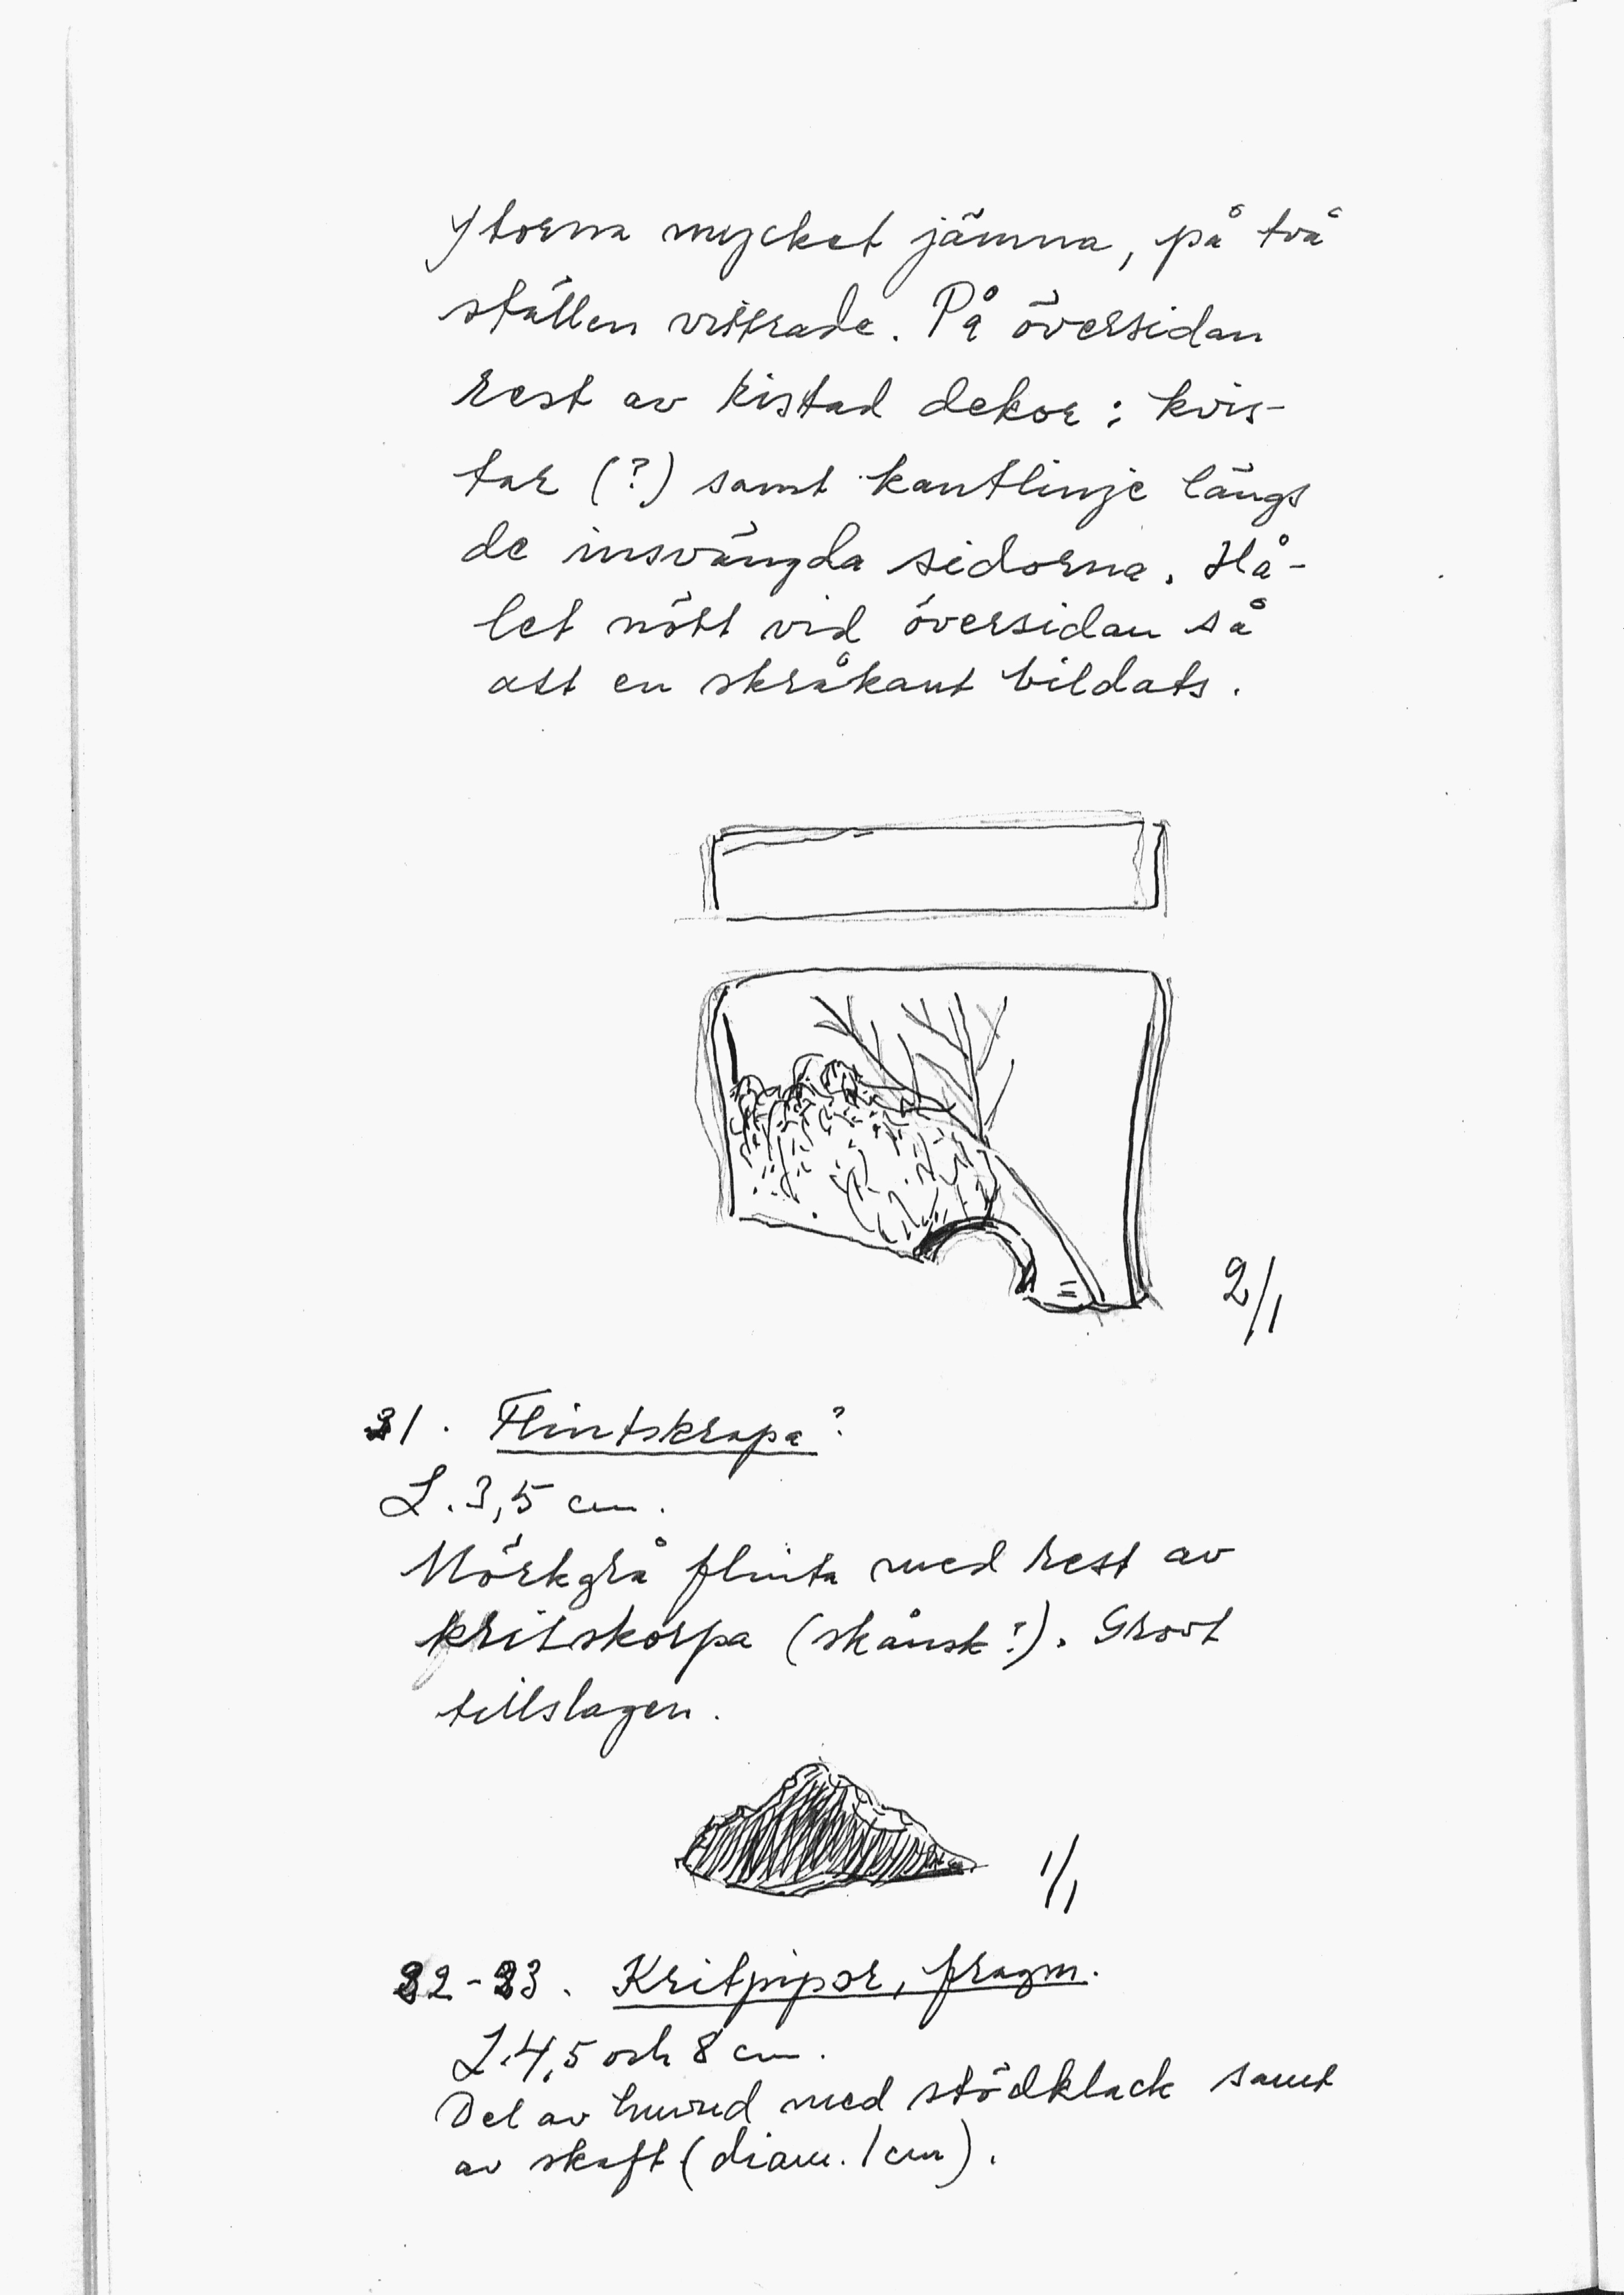 Ytorna mycket jämna, på två
ställen vittrade. På översidan
rest av ristad dekor: kvis-
tar (?) samt kantlinje längs
de insvängda sidorna. Hå-
let nött vid översidan så
att en skråkant bildats.
2/1
31. Flintskrapa?
L. 3,5 cm.
Mörkgrå flinta med rest av
kritskorpa (skånsk?). Grovt
tillslagen.
1/1
32-33. Kritpipor, fragm.
L. 4,5 och 8 cm.
Del av huvud med stödklack samt
av skaft (diam. 1 cm).